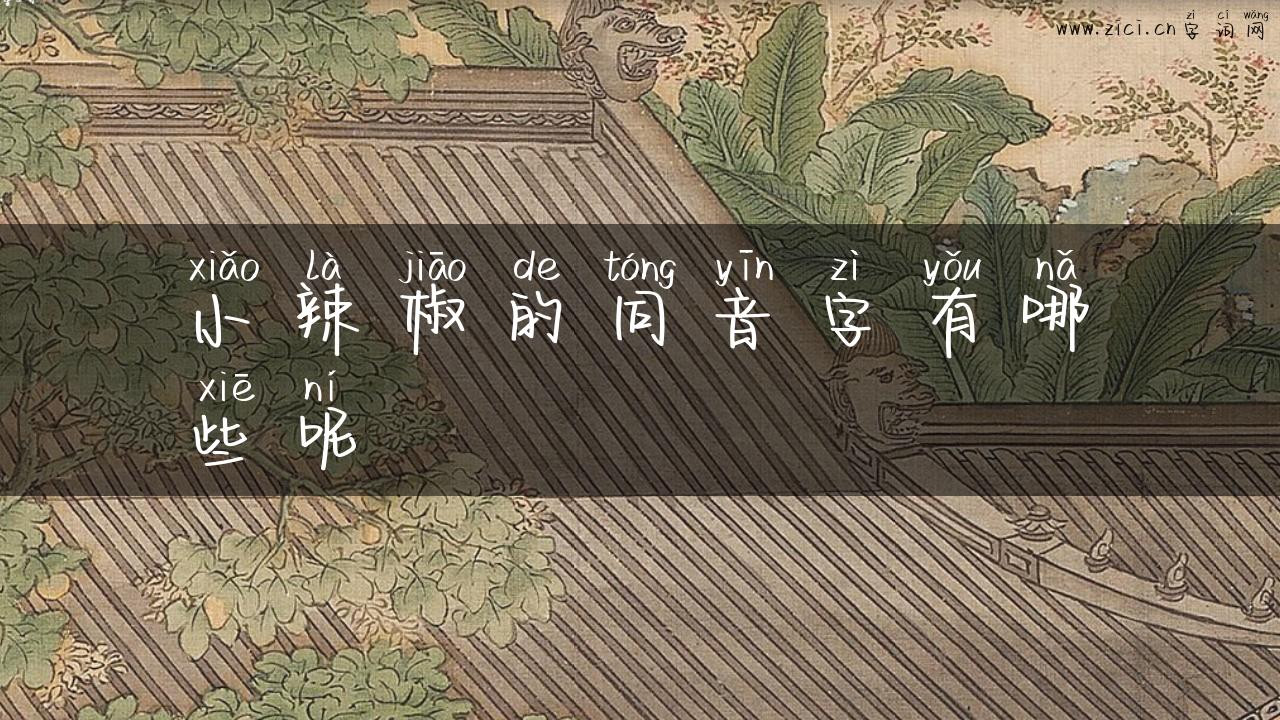 zì cí wǎng
www.zici.cn 字词网
xiǎo là jiāo de tóng yīn zì yǒu nǎ
小辣椒的同音字有哪
xiē ní
些呢